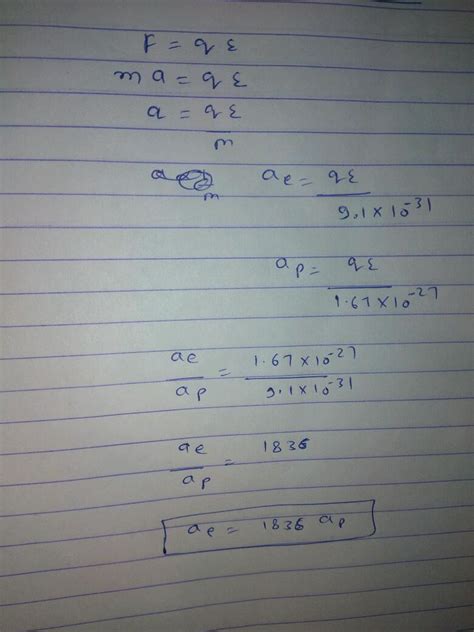 F = qε
ma = qε
a = qε/m
ae = qε/9.1×10^-31
ap = qε/1.67×10^-27
ae/ap = 1.67×10^-27/9.1×10^-31
ae/ap = 1836
ae = 1836 ap